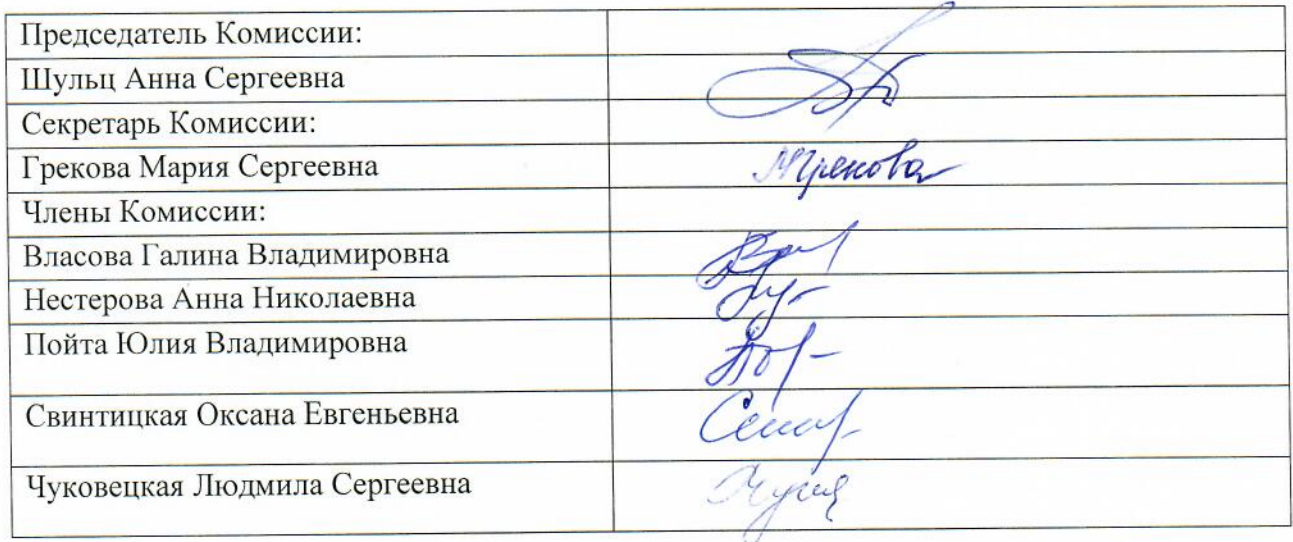 Председатель Комиссии:
Шульц Анна Сергеевна
Секретарь Комиссии:
Грекова Мария Сергеевна
МГрекова
Члены Комиссии:
Власова Галина Владимировна
Нестерова Анна Николаевна
Пойта Юлия Владимировна
Свинтицкая Оксана Евгеньевна
Чуковецкая Людмила Сергеевна